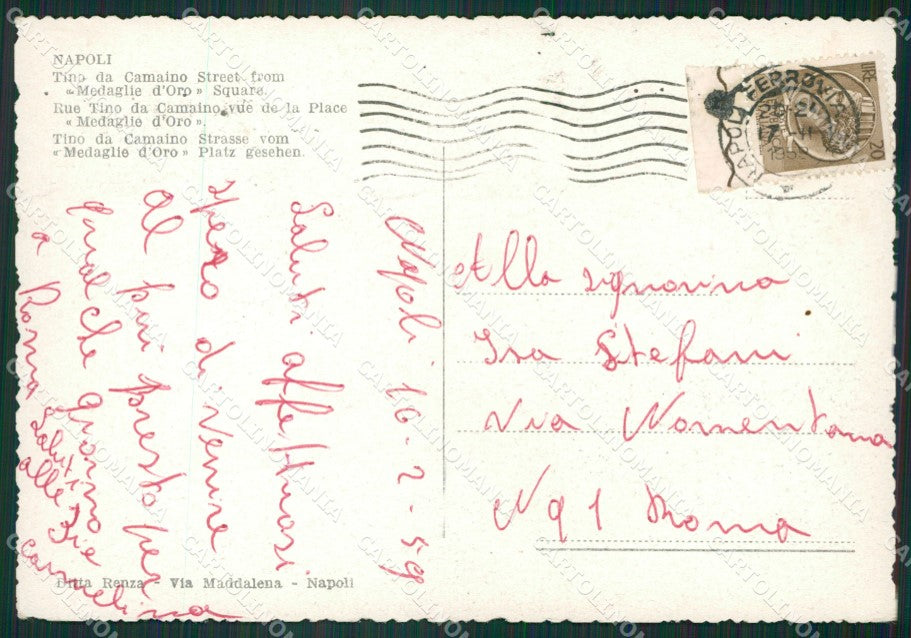 NAPOLI
Tino da Camaino Street from
«Medaglie d'Oro» Square.
Rue Tino da Camaino, vue de la Place
«Medaglie d'Oro».
Tino da Camaino Strasse vom
«Medaglie d'Oro» Platz gesehen.
Napoli 16-2-59
Saluti affettuosi
spero di venire
al più presto per
qualche giorno
a Roma Saluti
alle Zie
Carmelina
Ditta Renza - Via Maddalena - Napoli
NAPOLI FERROVIA
17
LIRE 20
Alla signorina
Isa Stefani
Via Nomentana
N 91 Roma
CARTOLINOMANIA